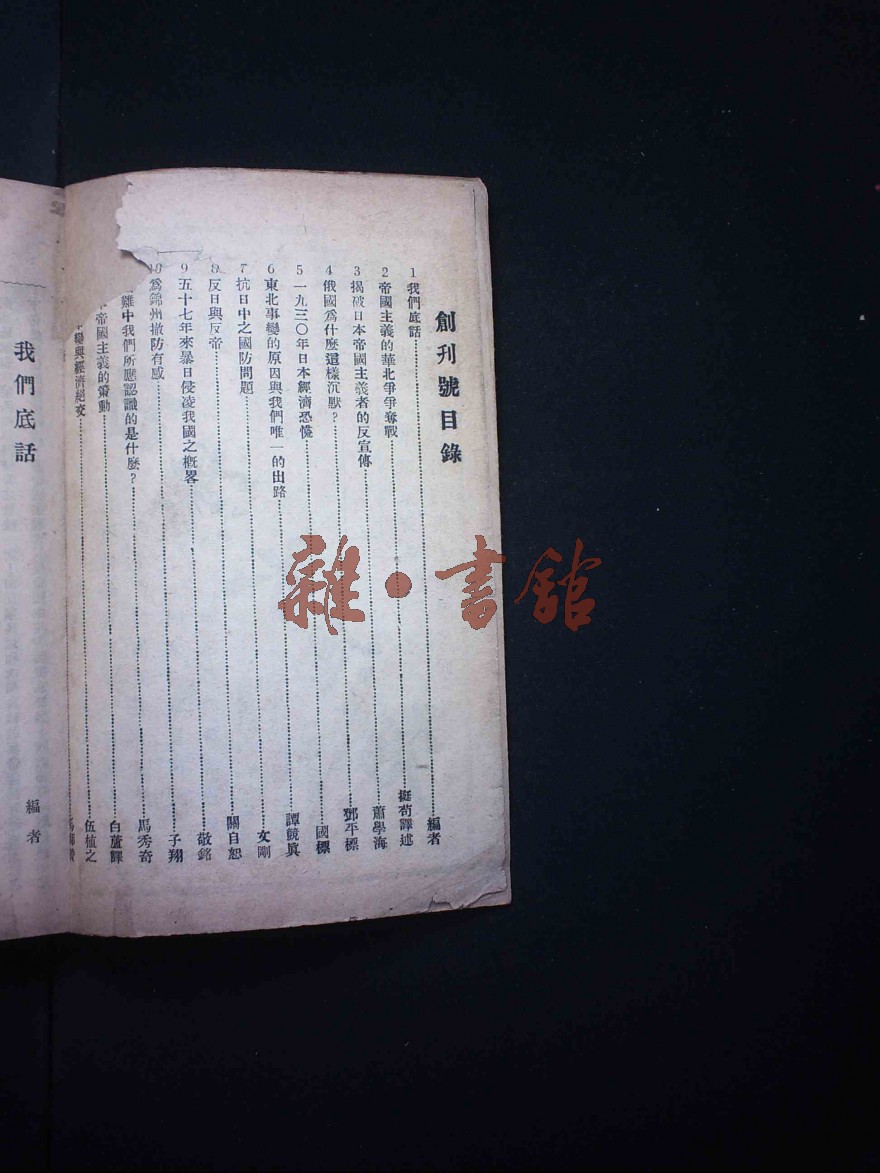 創刊號目錄
1 我們底話 編者
2 帝國主義的華北爭爭奪戰 挺苟譯述
3 揭破日本帝國主義者的反宣傳 蕭學海
4 俄國爲什麽這樣沉默? 鄧平標
5 一九三〇年日本經濟恐慌 國標
6 東北事變的原因與我們唯一的出路 譚競眞
7 抗日中之國防問題 文剛
8 反日與反帝 關自恕
9 五十七年來暴日侵凌我國之槪畧 敬銘
10 爲錦州撤防有感 子翔
難中我們所應認識的是什麽? 馬秀奇
帝國主義的策動 白蘆譯
變與經濟絕交 伍植之
我們底話
編者
雜·書館